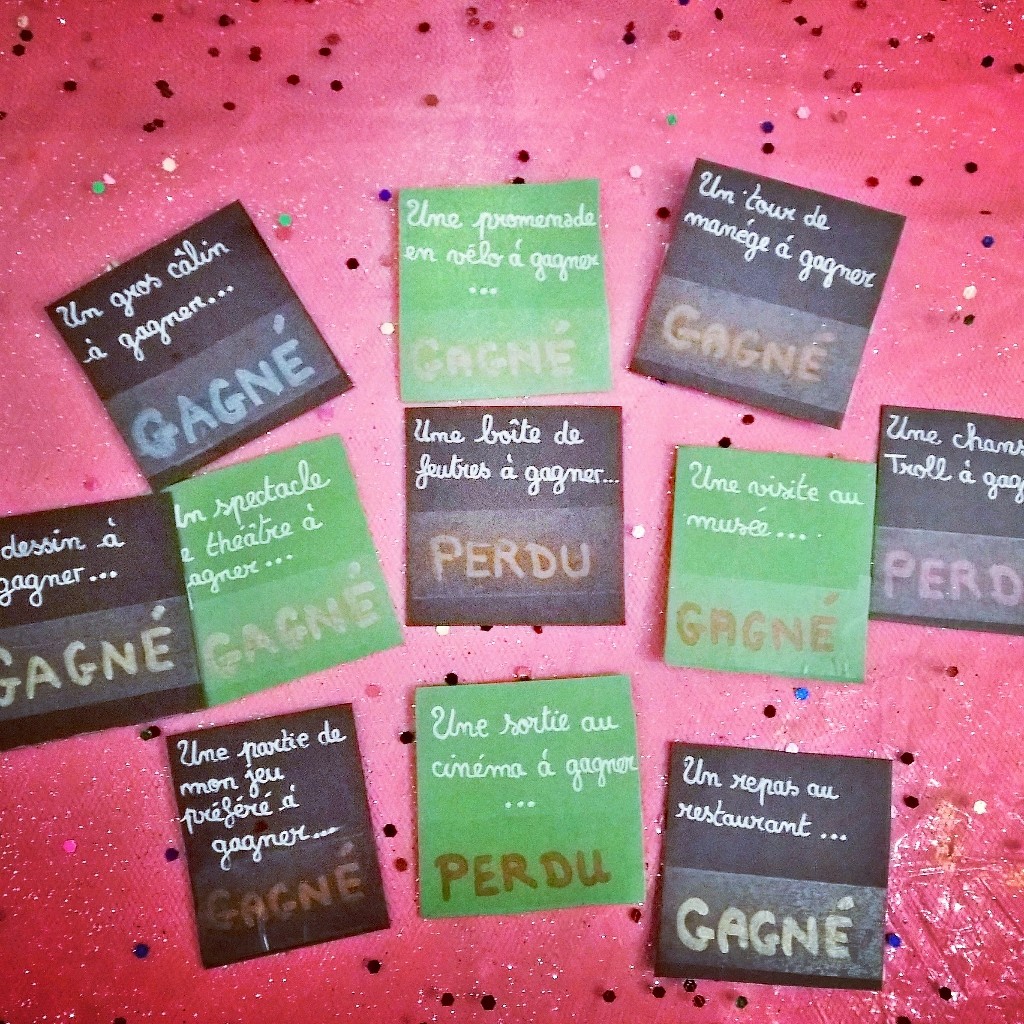 Un gros câlin
à gagner...
GAGNÉ
Une promenade
en vélo à gagner
...
GAGNÉ
Un tour de
manége á gagner
GAGNÉ
dessin à
gagner...
GAGNÉ
spectacle
théâtre à
GAGNÉ
Une boîte de
feutres à gagner...
PERDU
Une visite au
musée...
GAGNÉ
Une
Troll à
Une partie de
mon jeu
préféré à
gagner...
GAGNÉ
Une sortie au
cinéma á gagner
...
PERDU
Un repas au
restaurant...
GAGNÉ